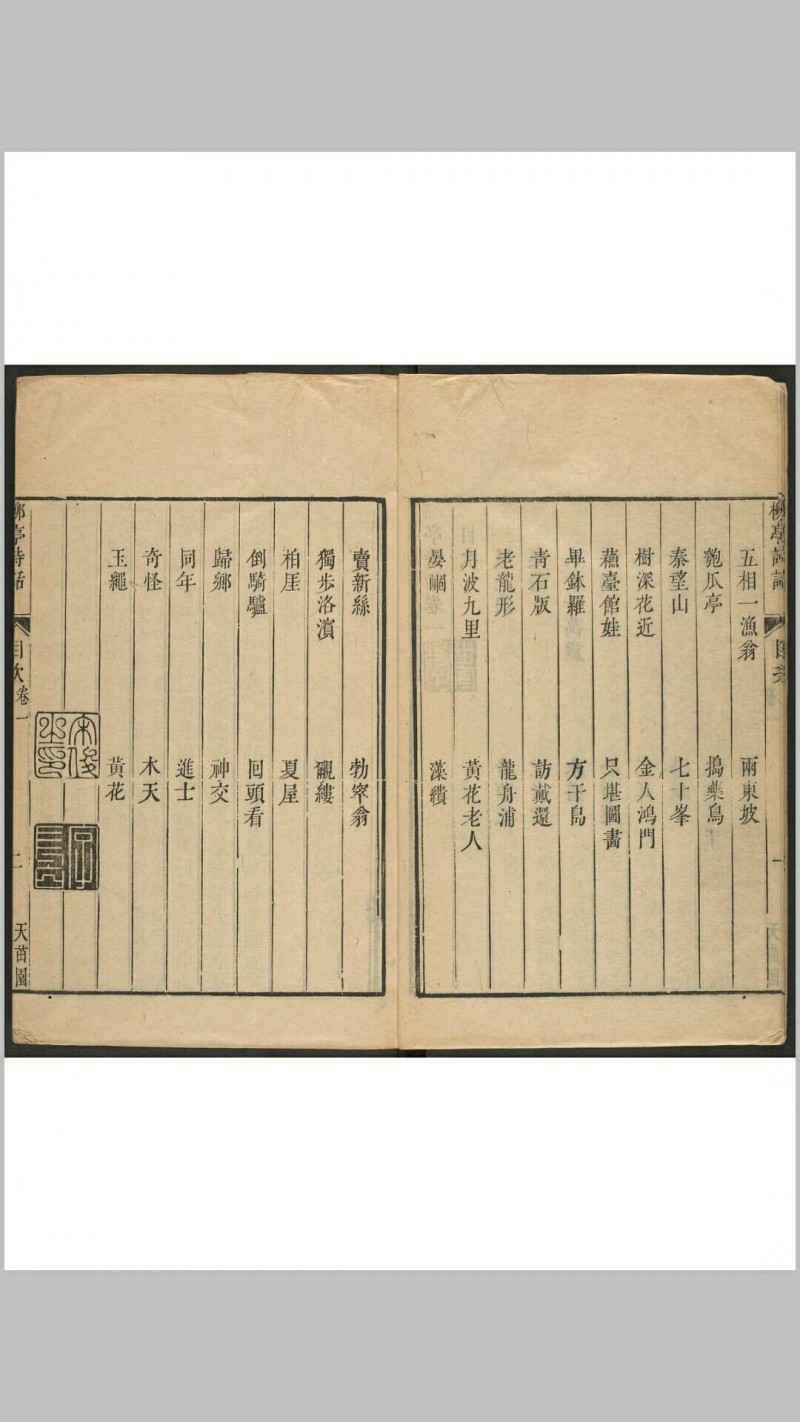 柳亭詩話
目次
一
五相一漁翁 兩東坡
匏瓜亭 搗藥鳥
秦望山 七十峯
樹深花近 金人鴻門
蘓臺館娃 只堪圖畵
畢鉢羅 方干島
青石版 訪戴還
老龍形 龍舟浦
月波九里 黃花老人
晏崓 藻繢
賣新絲 勃窣翁
獨步洛濱 覼縷
柏厓 夏屋
倒騎驢 回頭看
歸鄉 神交
同年 進士
奇怪 木天
玉繩 黃花
宋俊之印
柳亭詩話
目次 卷一
二
天茁園